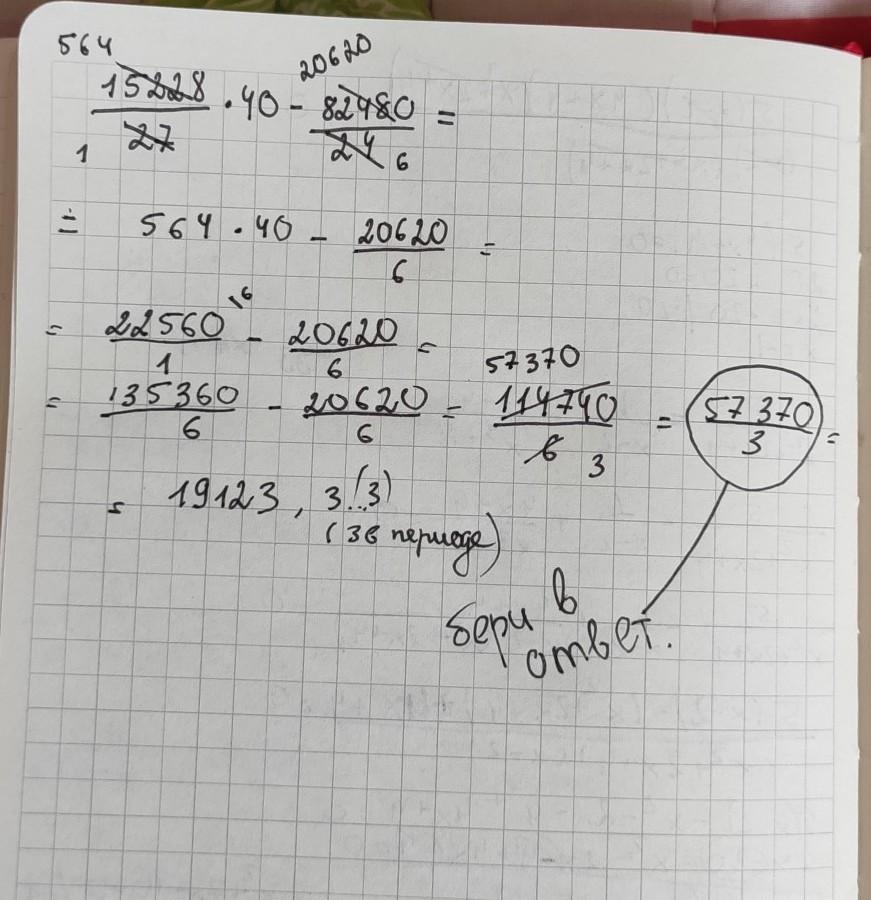 564 20620
15228/27 · 40 - 82480/24 =
1 6
= 564 · 40 - 20620/6 =
= 22560/1 \6 - 20620/6 =
57370
= 135360/6 - 20620/6 = 114740/6 = 57370/3 =
3
= 19123, 3(..3)
(3в периоде)
бери в
ответ.